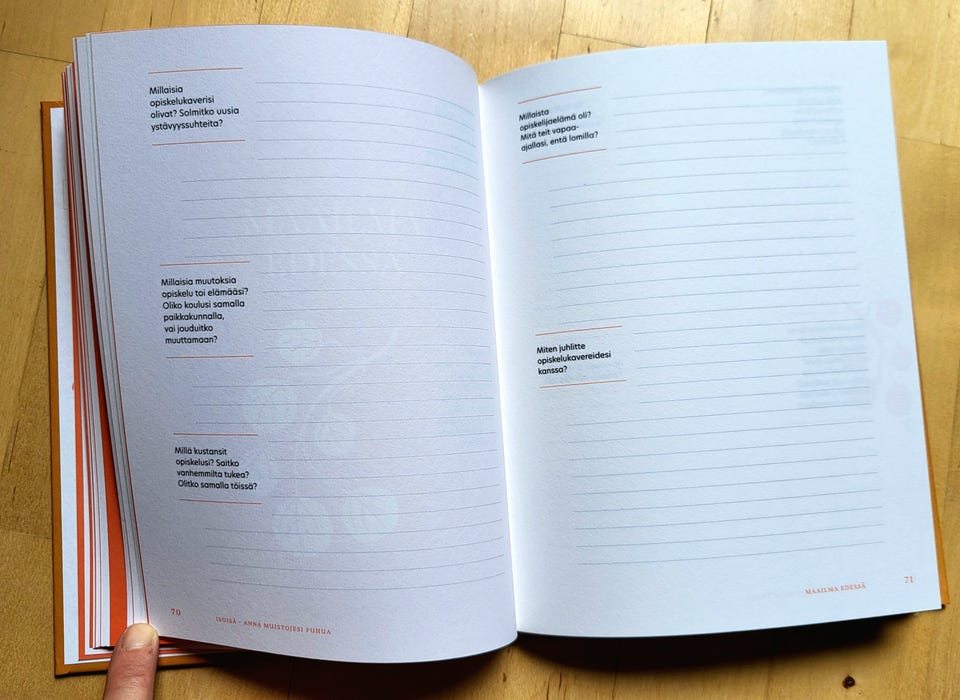 Millaisia
opiskelukaverisi
olivat? Solmitko uusia
ystävyyssuhteita?
Millaisia muutoksia
opiskelu toi elämääsi?
Oliko koulusi samalla
paikkakunnalla,
vai jouduitko
muuttamaan?
Millä kustansit
opiskelusi? Saitko
vanhemmilta tukea?
Olitko samalla töissä?
70
ISOISÄ – ANNA MUISTOJESI PUHUA
Millaista
opiskelijaelämä oli?
Mitä teit vapaa-
ajallasi, entä lomilla?
Miten juhlitte
opiskelukavereidesi
kanssa?
MAAILMA EDESSÄ
71
MAAILMA
EDESSÄ